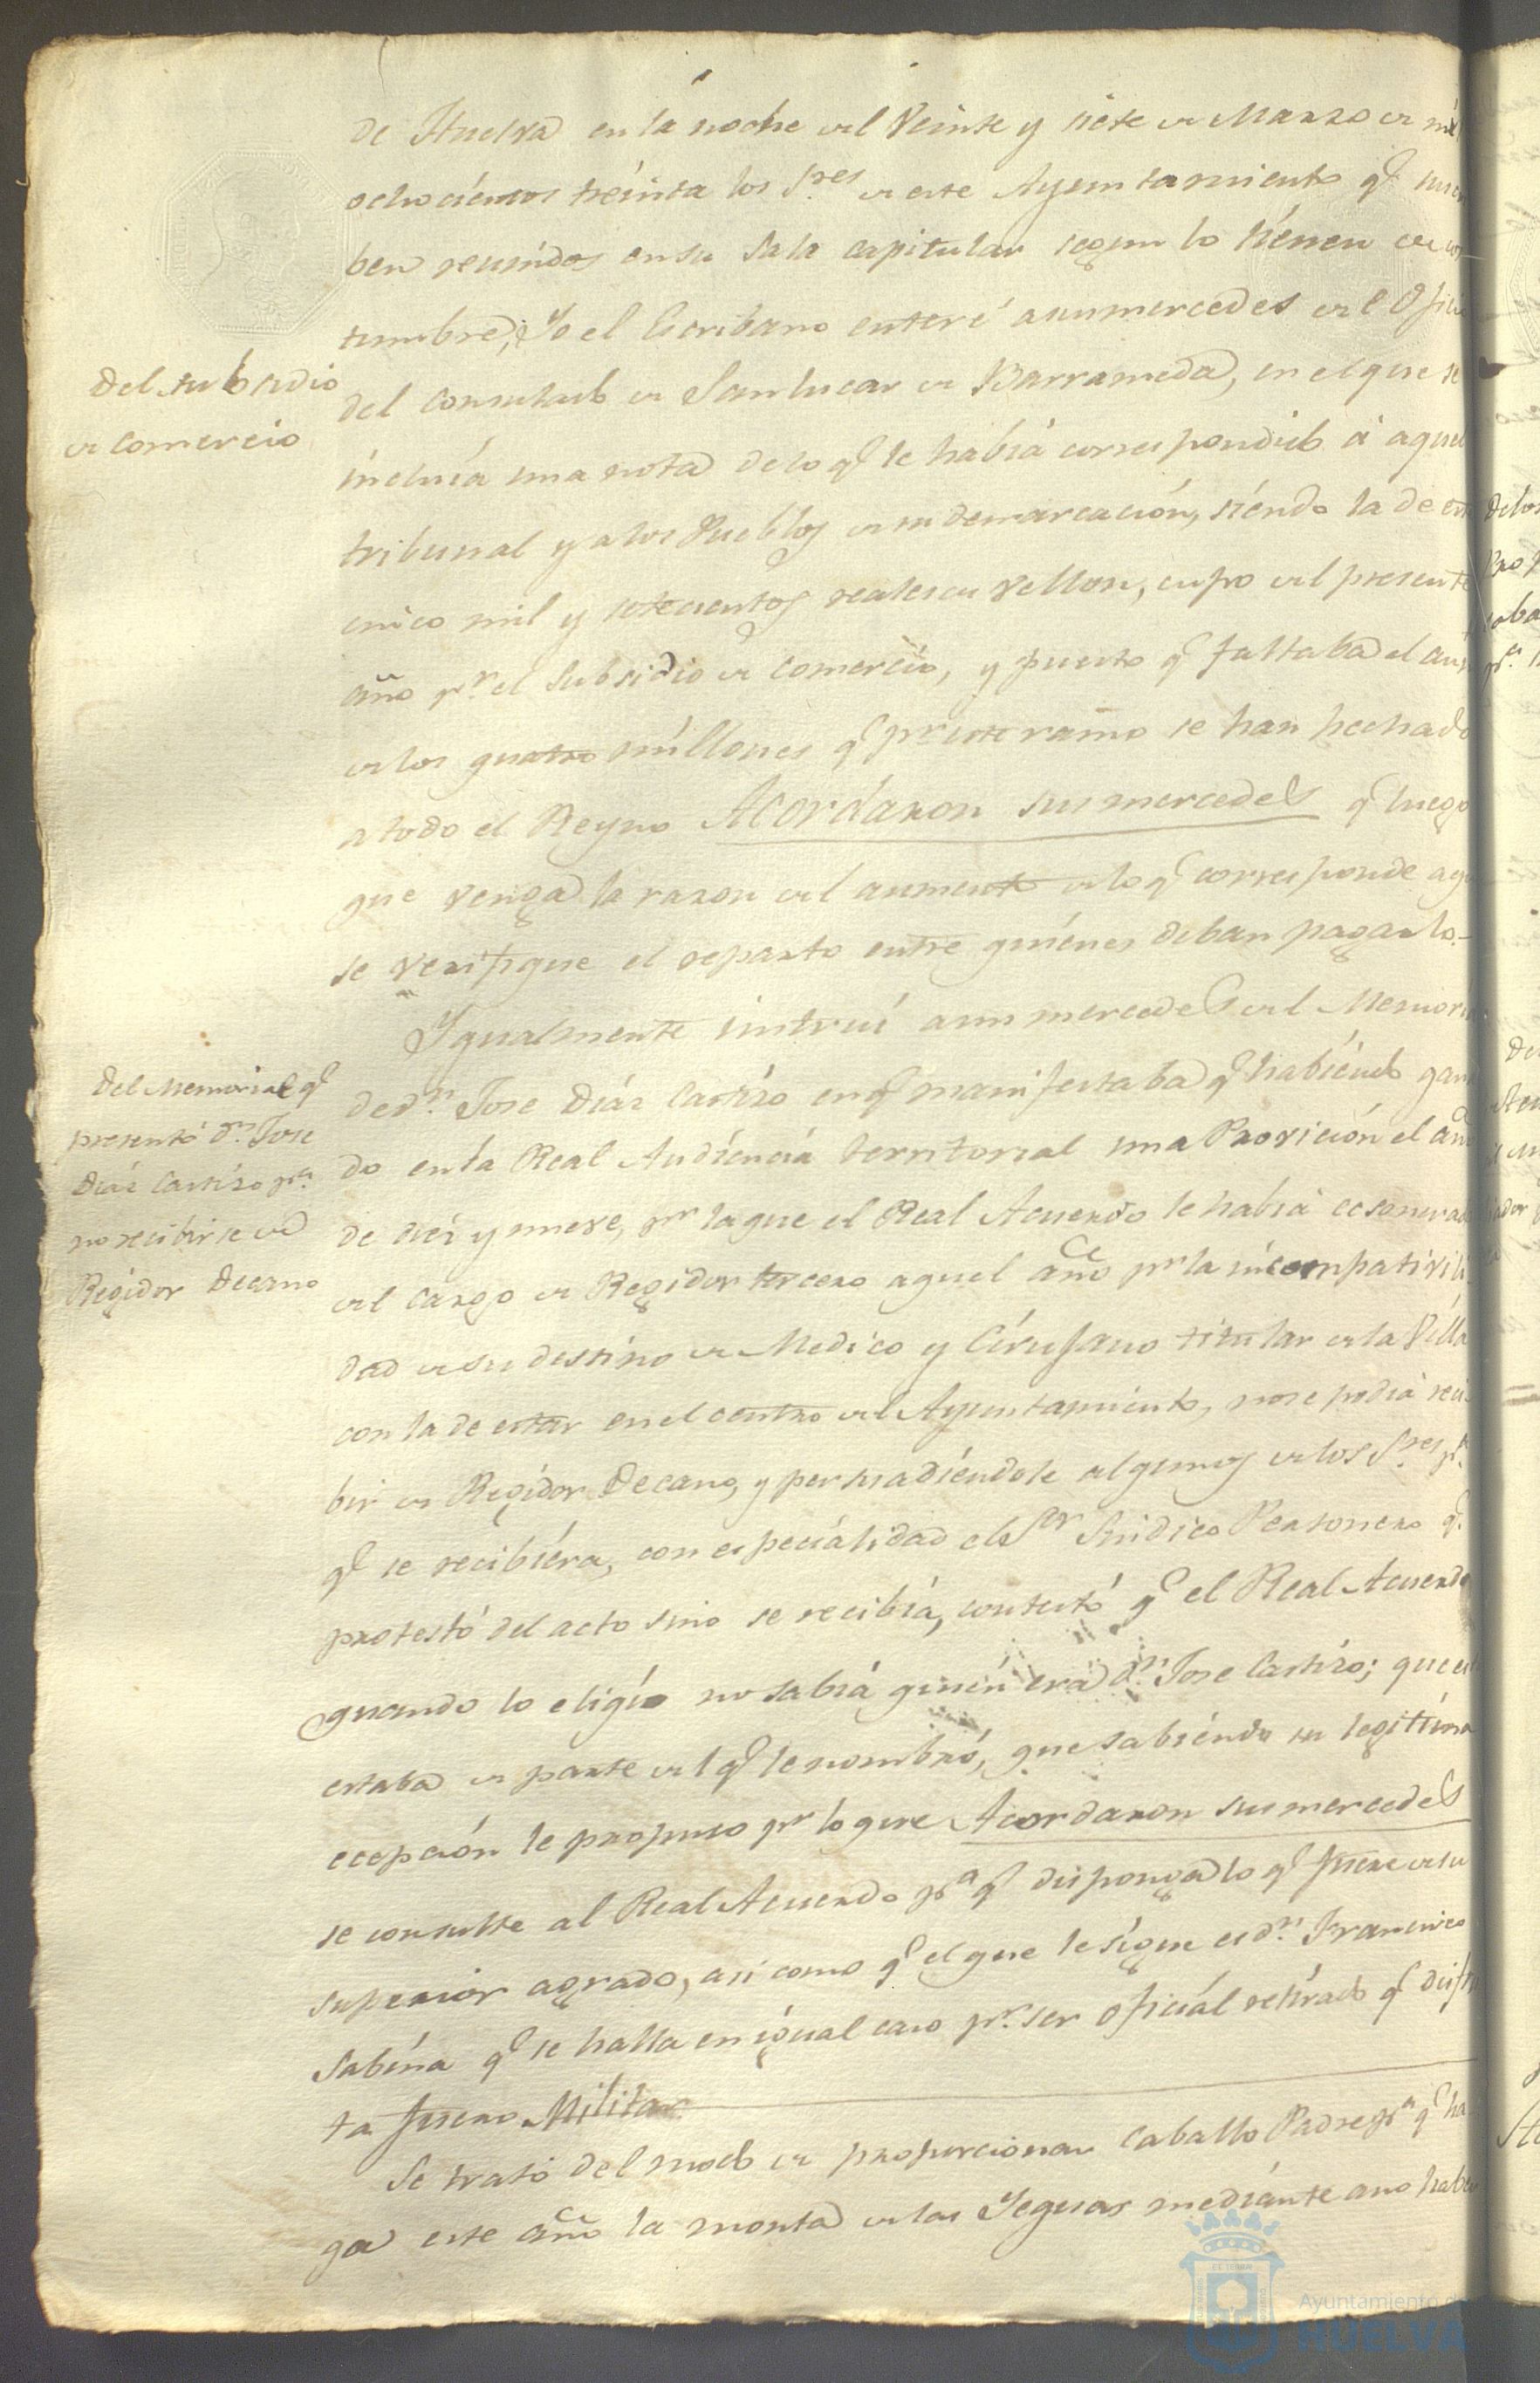 de Huelva en la noche del Veinte y siete de Marzo de mil
ochocientos treinta los S.res de este Ayuntamiento q.e suscri
ben reunidos en su Sala capitular segun lo tienen de cos
tumbre, Yo el Escribano enteré a sus mercedes del Oficio
Del subsidio
de Comercio
del consulado de Sanlucar de Barrameda, en el que se
incluía una nota de lo q.e le había correspondido á aquel
tribunal y a los Pueblos de su demarcación, siendo la de esta
cinco mil y setecientos reales de Vellon, cupo del presente
año p.r el Subsidio de comercio, y puesto q.e faltaba el
de los quatro míllones q.e p.r este ramo se han hechado
a todo el Reyno Acordáron sus mercedes q.e luego
que venga la razon del aumento de lo q.e corresponde
se verifique el reparto entre quiénes deban pagarlo.-
Igualmente instruí a sus mercedes del Memorial
Del Memorial q.e
presentó d.n Jose
Díaz Castizo p.a
no recibirse de
Regidor Decano
de d.n Jose Díaz Castizo en q.e manifestaba q.e habiendo gana
do en la Real Audiencia territorial una Provición el año
de diez y nueve, p.r la que el Real Acuerdo le había ecsonerado
del cargo de Regidor tercero aquel año p.r la incompativili
dad de su destino de Medico y Cirujano titular de la Villa
con la de estar en el centro del Ayuntamiento, no se podía reci
bir de Regidor Decano, y persuadiéndole algunos de los S.res p.a
q.e se recibiera, con especialidad el S.or Sindico Personero q.e
protestó del acto sino se recibía, contestó q.e el Real Acuerdo
quando lo eligío no sabía quien era d.n Jose Castizo; que
estaba de parte del q.e le nombró, que sabiendo su legitíma
ecepción le propuso p.r lo que Acordaron sus mercedes
se consulte al Real Acuerdo p.a q.e disponga lo q.e fuere de su
superior agrado, asi como q.e el que le sigue es d.n Francisco
Sabína q.e se halla en igual caso p.r ser oficíal retirado q.e disfru
ta fuero Militar
Se trató del modo de proporcionar Caballo Padre p.a q.e ha
ga este año la monta de las Yeguas mediánte a no haber
Ayuntamiento de
HUELVA